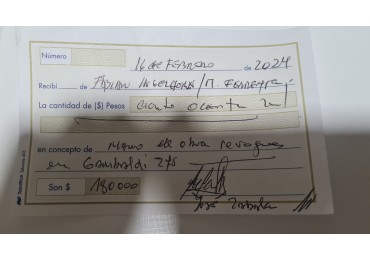 Número
16 de FEBRERO de 2024
Recibí de
La cantidad de ($) Pesos ciento ochenta mil
en concepto de Mano de obra revoques
en Garibaldi 275
Son $ 180000
José